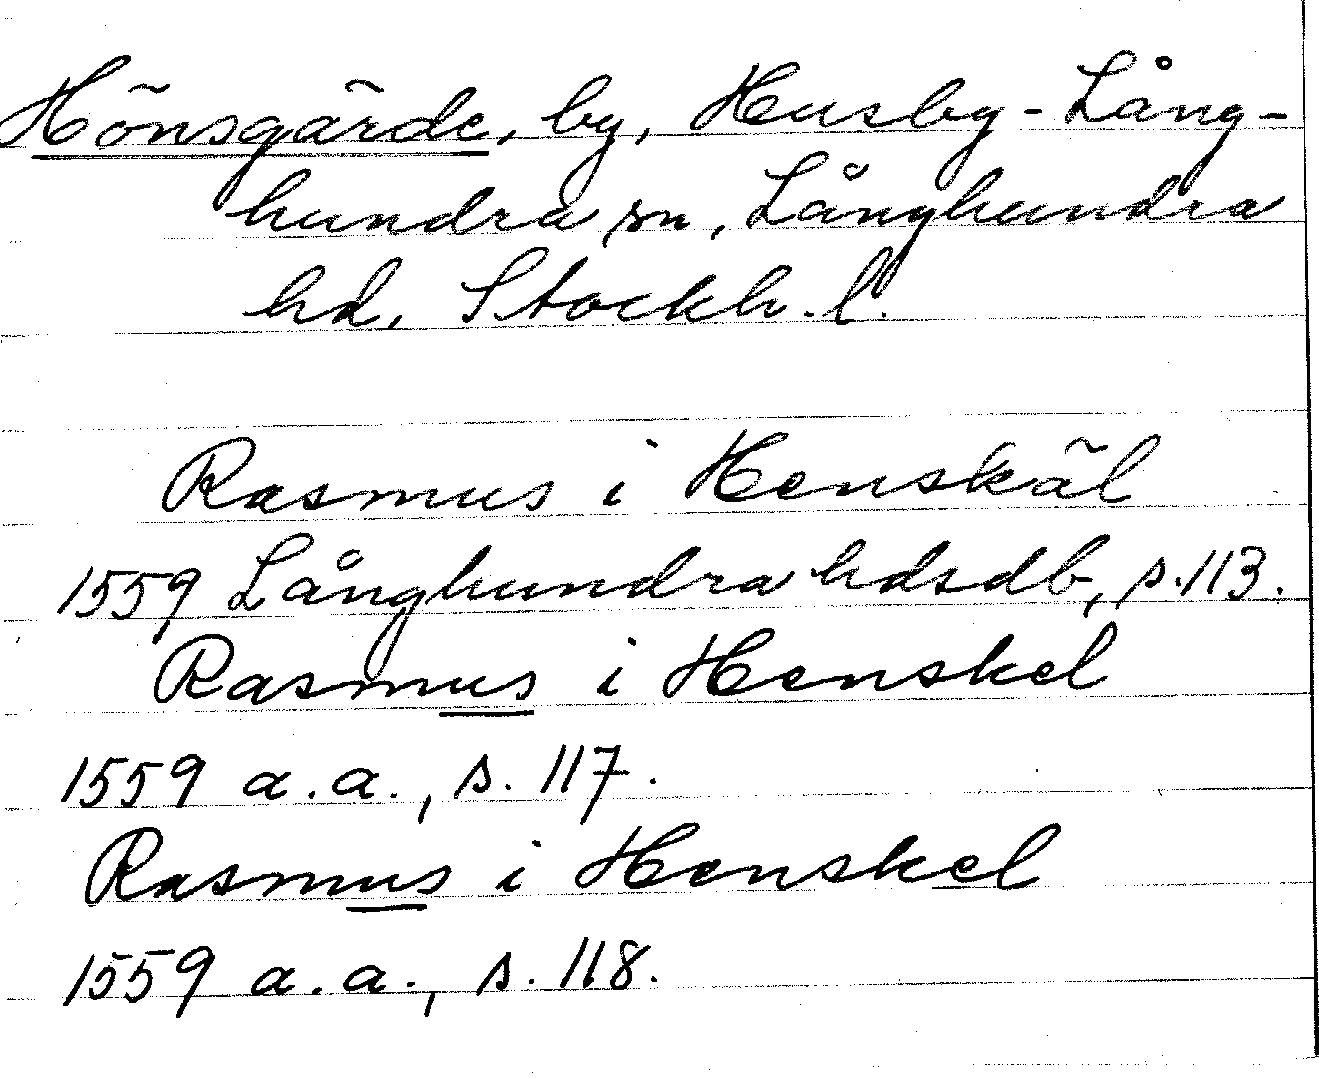 Hönsgärde, by, Husby-Lång-
hundra sn, Långhundra
hd, Stockh. l.
Rasmus i Henskäl
1559 Långhundra hdsdb, s. 113.
Rasmus i Henskel
1559 a. a., s. 117.
Rasmus i Henskel
1559 a. a., s. 118.